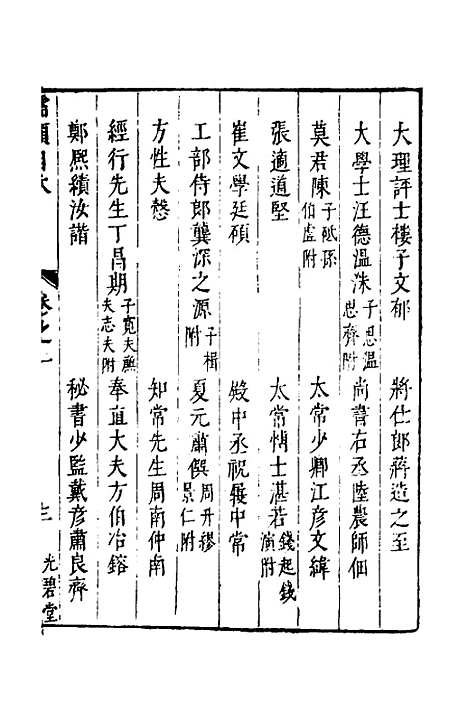 大理評士樓子文郁
將仕郎蔣造之至
大學士汪德溫洙子思溫思齊附
尚書右丞陸農師佃
莫君陳子砥孫伯虛附
太常少卿江彦文緯
張適道堅
太常博士湛若錢起錢演附
崔文學廷碩
殿中丞祝履中常
工部侍郎龔深之源子楫附
夏元肅僎周升繆景仁附
方性夫慤
知常先生周南仲南
經行先生丁昌期子寬夫廉夫志夫附
奉直大夫方伯冶鎔
鄭熙績汝諧
秘書少監戴彦肅良齊
卷之二
三
光碧堂